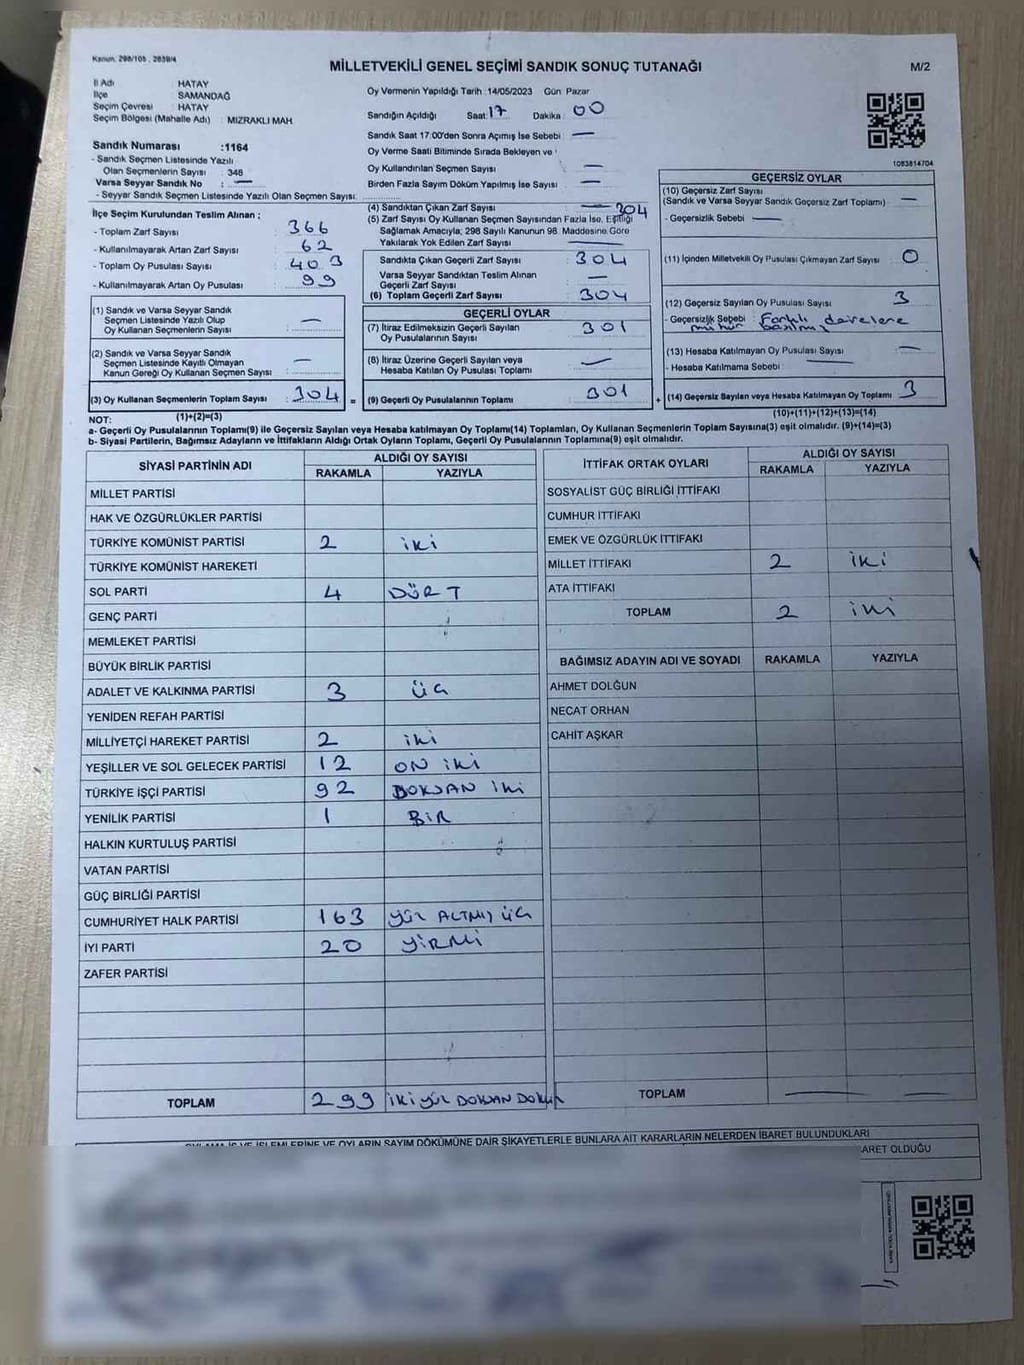 Kanun. 298/105 , 2839/4
MİLLETVEKİLİ GENEL SEÇİMİ SANDIK SONUÇ TUTANAĞI
M/2
İl Adı : HATAY
İlçe : SAMANDAĞ
Seçim Çevresi : HATAY
Seçim Bölgesi (Mahalle Adı) : MIZRAKLI MAH.
Sandık Numarası :1164
- Sandık Seçmen Listesinde Yazılı
Olan Seçmenlerin Sayısı : 348
Varsa Seyyar Sandık No : —
- Seyyar Sandık Seçmen Listesinde Yazılı Olan Seçmen Sayısı:
İlçe Seçim Kurulundan Teslim Alınan ;
- Toplam Zarf Sayısı : 366
- Kullanılmayarak Artan Zarf Sayısı : 62
- Toplam Oy Pusulası Sayısı : 403
- Kullanılmayarak Artan Oy Pusulası : 99
(1) Sandık ve Varsa Seyyar Sandık
Seçmen Listesinde Yazılı Olup
Oy Kullanan Seçmenlerin Sayısı : —
(2) Sandık ve Varsa Seyyar Sandık
Seçmen Listesinde Kayıtlı Olmayan
Kanun Gereği Oy Kullanan Seçmen Sayısı : —
(3) Oy Kullanan Seçmenlerin Toplam Sayısı : 304 =
(1)+(2)=(3)
Oy Vermenin Yapıldığı Tarih :14/05/2023 Gün Pazar
Sandığın Açıldığı Saat: 17 Dakika : 00
Sandık Saat 17:00'den Sonra Açımış İse Sebebi : —
Oy Verme Saati Bitiminde Sırada Bekleyen ve
Oy Kullandırılan Seçmen Sayısı : —
Birden Fazla Sayım Döküm Yapılmış İse Sayısı : —
(4) Sandıktan Çıkan Zarf Sayısı : 304
(5) Zarf Sayısı Oy Kullanan Seçmen Sayısından Fazla İse, Eşitliği
Sağlamak Amacıyla; 298 Sayılı Kanunun 98. Maddesine Göre
Yakılarak Yok Edilen Zarf Sayısı : —
Sandıkta Çıkan Geçerli Zarf Sayısı : 304
Varsa Seyyar Sandıktan Teslim Alınan
Geçerli Zarf Sayısı : —
(6) Toplam Geçerli Zarf Sayısı : 304
GEÇERLİ OYLAR
(7) İtiraz Edilmeksizin Geçerli Sayılan
Oy Pusulalarının Sayısı : 301
(8) İtiraz Üzerine Geçerli Sayılan veya
Hesaba Katılan Oy Pusulası Toplamı : —
(9) Geçerli Oy Pusulalarının Toplamı : 301 +
1083814704
GEÇERSİZ OYLAR
(10) Geçersiz Zarf Sayısı
(Sandık ve Varsa Seyyar Sandık Geçersiz Zarf Toplamı) : —
- Geçersizlik Sebebi : —
(11) İçinden Milletvekili Oy Pusulası Çıkmayan Zarf Sayısı : 0
(12) Geçersiz Sayılan Oy Pusulası Sayısı : 3
- Geçersizlik Sebebi : Farklı dairelere
mühür basılmış
(13) Hesaba Katılmayan Oy Pusulası Sayısı : —
- Hesaba Katılmama Sebebi :
(14) Geçersiz Sayılan veya Hesaba Katılmayan Oy Toplamı : 3
(10)+(11)+(12)+(13)=(14)
NOT:
a- Geçerli Oy Pusulalarının Toplamı(9) ile Geçersiz Sayılan veya Hesaba Katılmayan Oy Toplamı(14) Toplamları, Oy Kullanan Seçmenlerin Toplam Sayısına(3) eşit olmalıdır. (9)+(14)=(3)
b- Siyasi Partilerin, Bağımsız Adayların ve İttifakların Aldığı Ortak Oyların Toplamı, Geçerli Oy Pusulalarının Toplamına(9) eşit olmalıdır.
SİYASİ PARTİNİN ADI
ALDIĞI OY SAYISI
RAKAMLA YAZIYLA
MİLLET PARTİSİ
HAK VE ÖZGÜRLÜKLER PARTİSİ
TÜRKİYE KOMÜNİST PARTİSİ 2 iki
TÜRKİYE KOMÜNİST HAREKETİ
SOL PARTİ 4 DÜRT
GENÇ PARTİ
MEMLEKET PARTİSİ
BÜYÜK BİRLİK PARTİSİ
ADALET VE KALKINMA PARTİSİ 3 üç
YENİDEN REFAH PARTİSİ
MİLLİYETÇİ HAREKET PARTİSİ 2 iki
YEŞİLLER VE SOL GELECEK PARTİSİ 12 ON iKi
TÜRKİYE İŞÇİ PARTİSİ 92 DOKSAN iki
YENİLİK PARTİSİ 1 BİR
HALKIN KURTULUŞ PARTİSİ
VATAN PARTİSİ
GÜÇ BİRLİĞİ PARTİSİ
CUMHURİYET HALK PARTİSİ 163 yüz ALTMIŞ üç
İYİ PARTİ 20 YİRMİ
ZAFER PARTİSİ
TOPLAM 299 iki yüz DOKSAN DOKUZ
İTTİFAK ORTAK OYLARI
ALDIĞI OY SAYISI
RAKAMLA YAZIYLA
SOSYALİST GÜÇ BİRLİĞİ İTTİFAKI
CUMHUR İTTİFAKI
EMEK VE ÖZGÜRLÜK İTTİFAKI
MİLLET İTTİFAKI 2 iki
ATA İTTİFAKI
TOPLAM 2 iki
BAĞIMSIZ ADAYIN ADI VE SOYADI RAKAMLA YAZIYLA
AHMET DOLĞUN
NECAT ORHAN
CAHİT AŞKAR
TOPLAM — —
OYLAMA İŞ VE İŞLEMLERİNE VE OYLARIN SAYIM DÖKÜMÜNE DAİR ŞİKAYETLERLE BUNLARA AİT KARARLARIN NELERDEN İBARET BULUNDUKLARI
ARET OLDUĞU